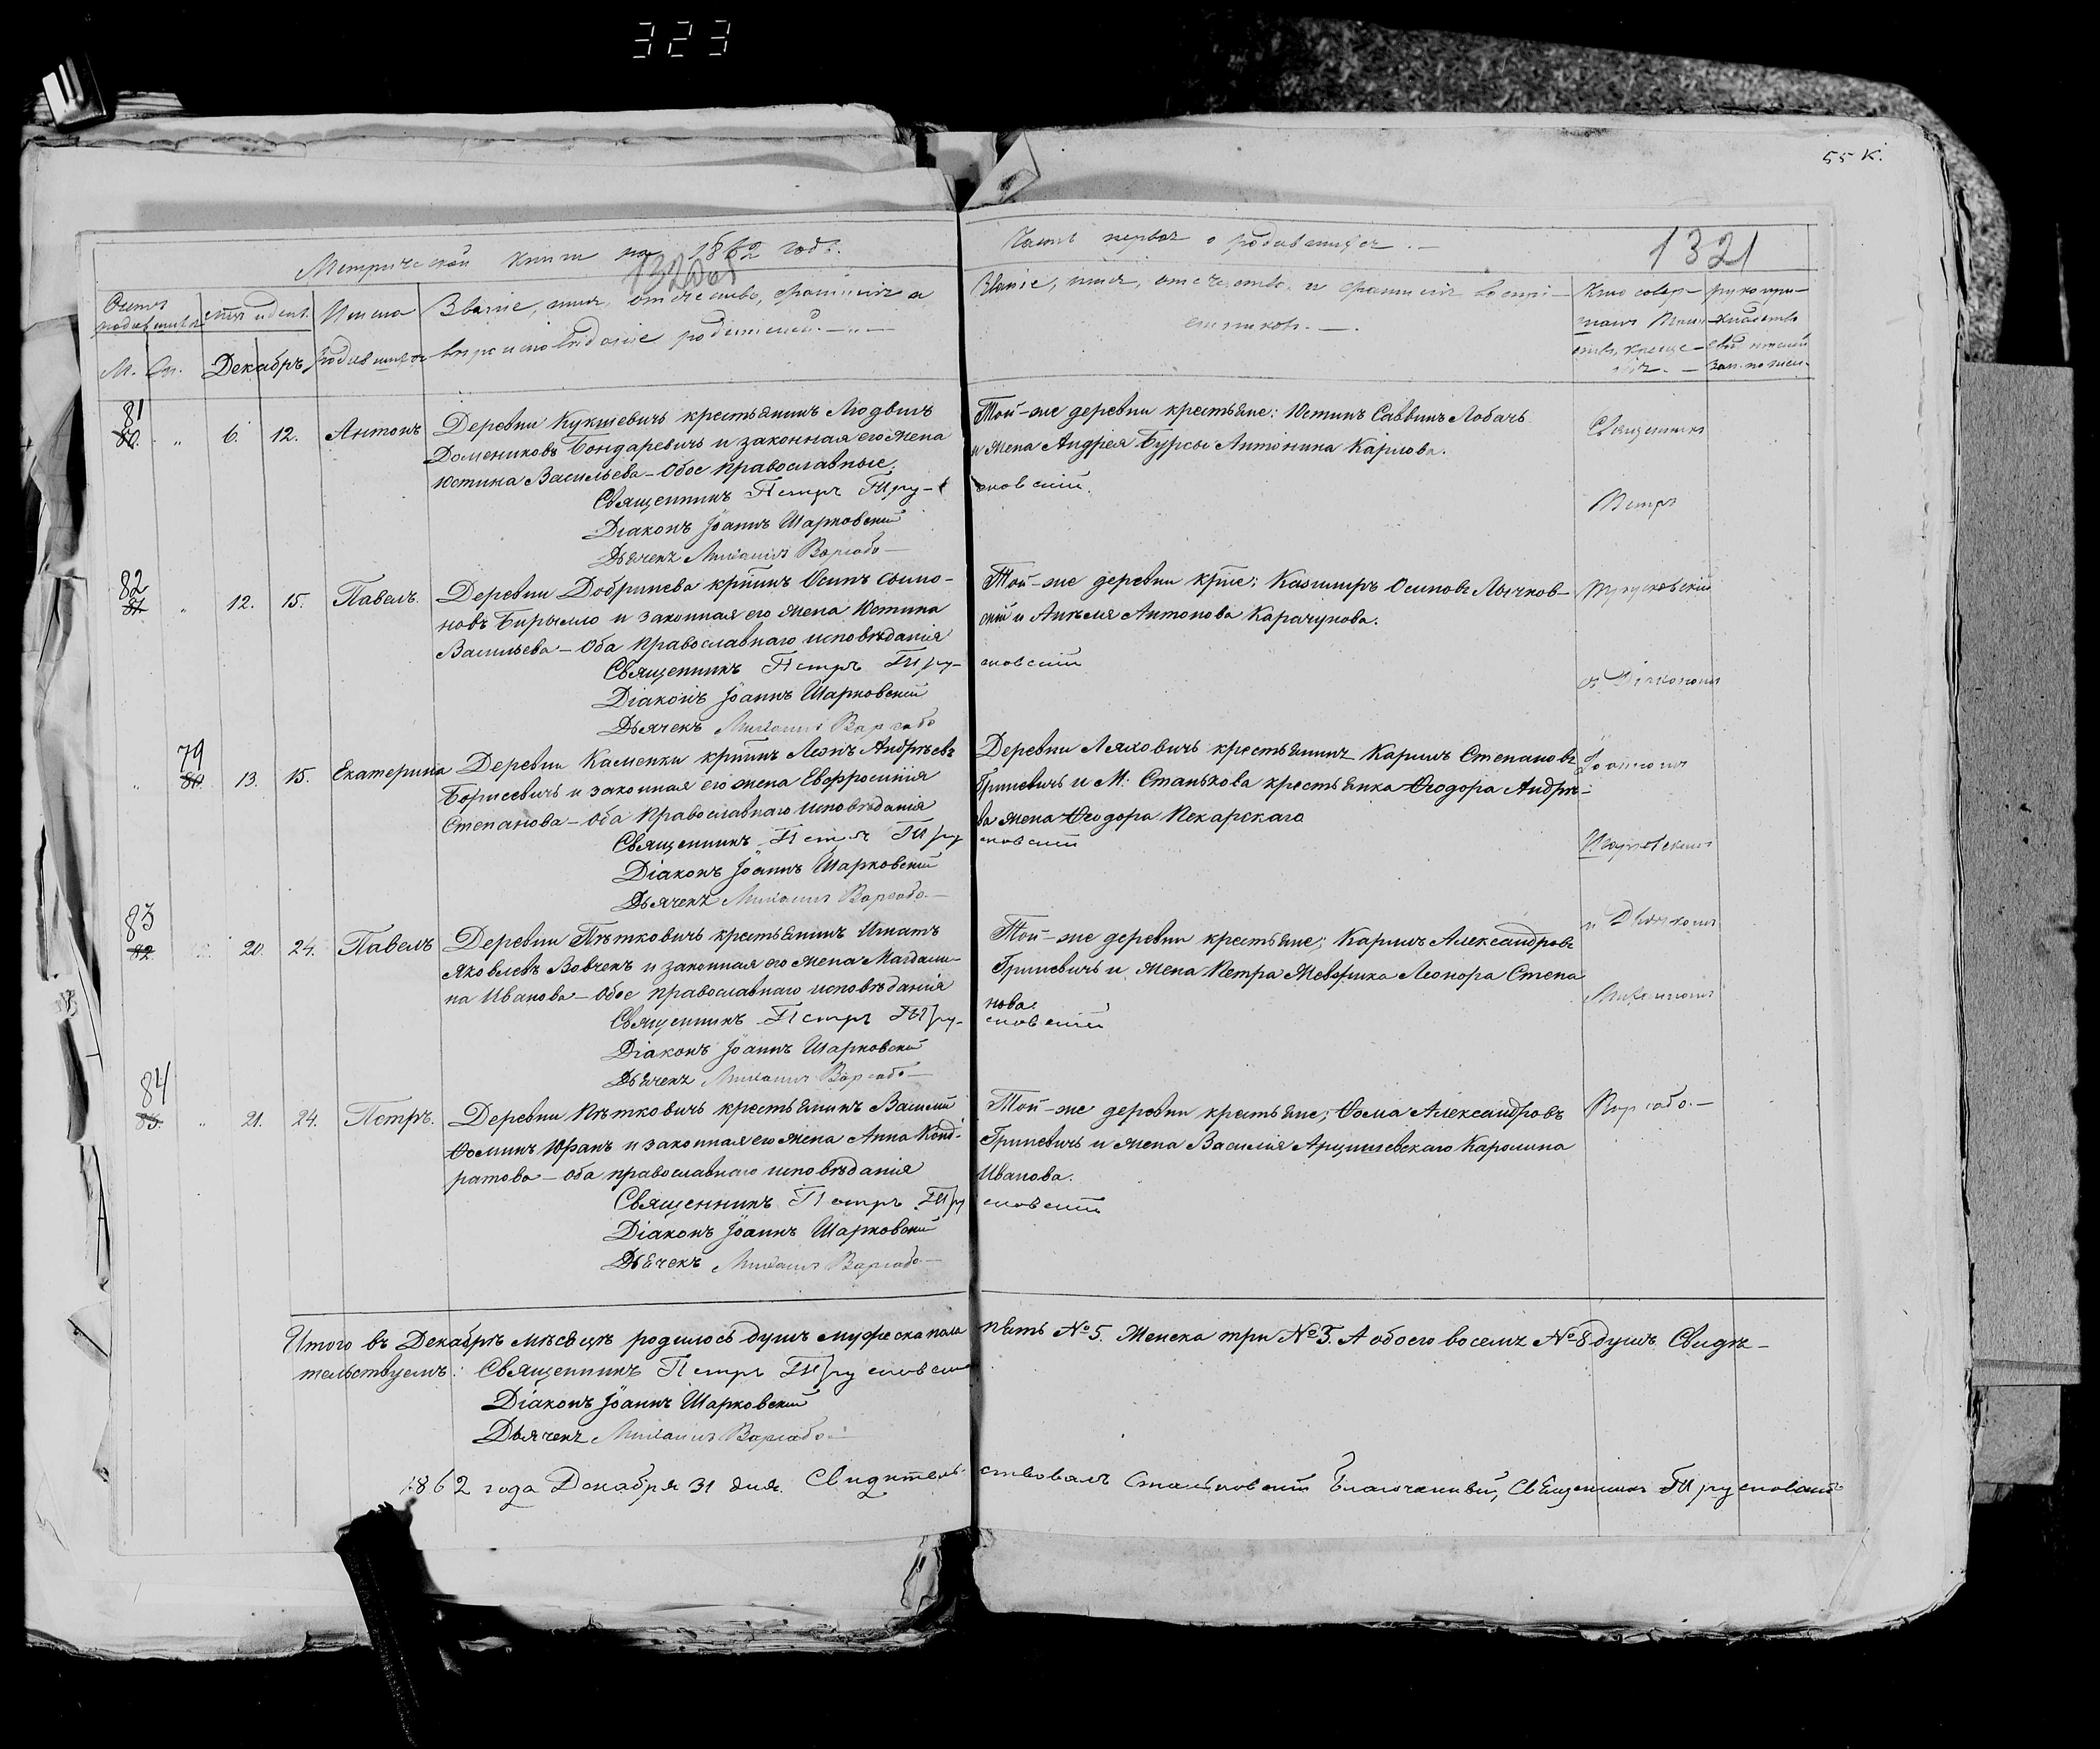 323
55 к.
Метрической книги на 1862 годъ.
Часть первая о родившихся.
1321
Счетъ родившихся
М. Ж.
Мѣс. и день.
Декабрь
Имена родившихся
Званіе, имя, отечество, фамилія и
вѣроисповѣданіе родителей.
Званіе, имя, отечество и фамилія воспрі-
емниковъ.
Кто совер-
шалъ Таин-
ство креще-
нія.
рукопри-
кладство
свид. записи
по жел.
81
80. „ 6. 12. Антонъ
Деревни Кукшевичъ крестьянинъ Людвигъ
Домениковъ Бондаревичъ и законная его жена
Юстина Васильева – Обое православные.
Священникъ Петръ Тру-
сковскій.
Діаконъ Іоаннъ Шарковскій
Дьячекъ Михаилъ Варсабо
Той-же деревни крестьяне: Юстинъ Саввинъ Лобачъ
и жена Андрея Бурсы Антонина Карлова.
82
81 „ 12. 15. Павелъ.
Деревни Добринева кр̃нинъ Осипъ Сымо-
новъ Бирылло и законная его жена Юстина
Васильева – Оба Православнаго исповѣданія
Священникъ Петръ Тру-
сковскій
Діаконъ Іоаннъ Шарковскій
Дьячекъ Михаилъ Варсабо
Той-же деревни кр̃не: Казимиръ Осиповъ Лычков-
скій и Анѣля Антонова Карачунова.
79
„ 80. 13. 15. Екатерина
Деревни Каменки кр̃нинъ Леонъ Андреевъ
Борисевичъ и законная его жена Евфросинія
Степанова – Оба Православнаго исповѣданія
Священникъ Петръ Тру
сковскій
Діаконъ Іоаннъ Шарковскій
Дьячекъ Михаилъ Варсабо
Деревни Ляховичъ крестьянинъ Карлъ Степановъ
Гриневичъ и М. Станькова крестьянка Ѳеодора Андре-
ва жена Ѳеодора Пекарскаго
83
82 20. 24. Павелъ
Деревни Пѣтковичъ крестьянинъ Игнатъ
Яковлевъ Вовчекъ и законная его жена Магдали-
на Иванова – Обое православнаго исповѣданія
Священникъ Петръ Тру-
сковскій
Діаконъ Іоаннъ Шарковскій
Дьячекъ Михаилъ Варсабо
Той-же деревни крестьяне; Карлъ Александровъ
Гриневичъ и жена Петра Леонора Степа
нова.
84
83. „ 21. 24. Петръ.
Деревни Пѣтковичъ крестьянинъ Василій
Ѳоминъ Юранъ и законная его жена Анна Конд-
ратова – Оба православнаго исповѣданія
Священникъ Петръ Тру
сковскій
Діаконъ Іоаннъ Шарковскій
Дьячекъ Михаилъ Варсабо
Той-же деревни крестьяне; Ѳома Александровъ
Гриневичъ и жена Василія Арцишевскаго Каролина
Иванова.
Священникъ
Петръ
Трусковскій
съ Діакономъ
Іоанномъ
Шарковскимъ
и Дьячкомъ
Михаиломъ
Варсабо.
Итого въ Декабрѣ мѣсяцѣ родилось душъ мужеска пола пять № 5. Женска три № 3. А обоего восемь № 8 душъ. Свидѣ-
тельствуемъ: Священникъ Петръ Трусковскій
Діаконъ Іоаннъ Шарковскій
Дьячекъ Михаилъ Варсабо
1862 года Декабря 31 дня. Свидѣтельствовалъ Станьковскій Благочинный, Священникъ Трусковскій